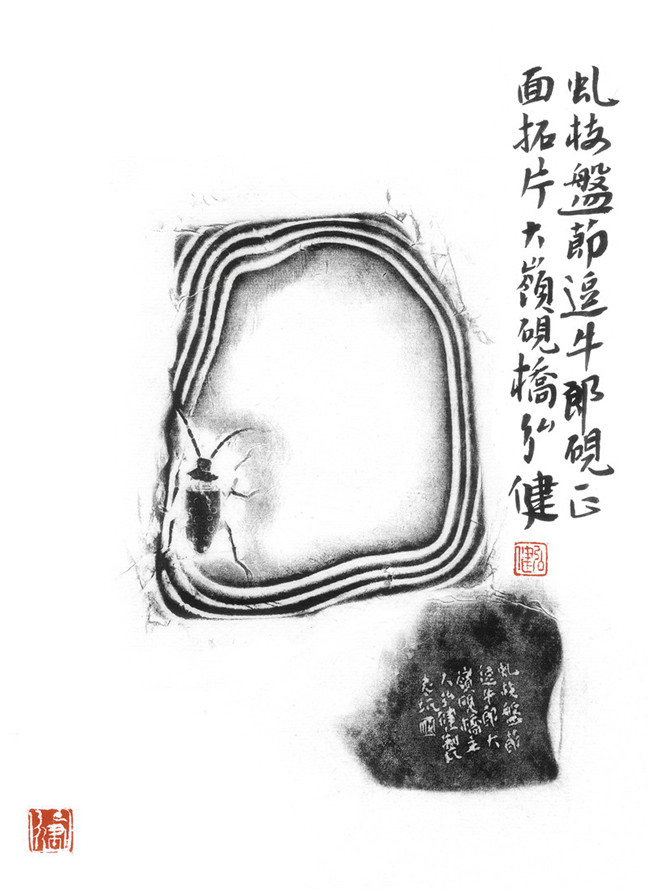 虬枝盤節逗牛郎硯正
面拓片大嶺硯橋弘健
弘健
虬枝盤節
逗牛郎大
嶺硯橋主
人弘健製於